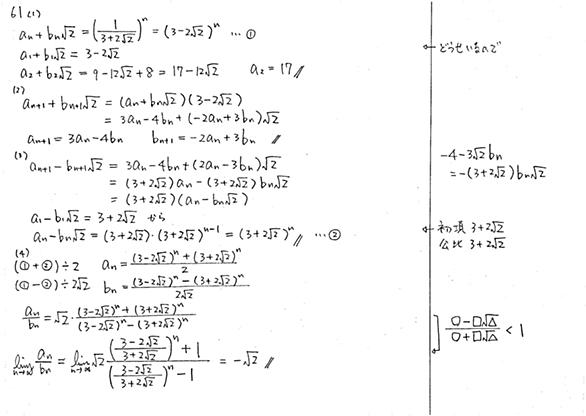 61 (1)
an + bn√2 = (1/(3+2√2))^n = (3-2√2)^n … ①
a1 + b1√2 = 3-2√2
a2 + b2√2 = 9-12√2+8 = 17-12√2 a2 = 17 //
(2)
an+1 + bn+1√2 = (an+bn√2)(3-2√2)
= 3an-4bn + (-2an+3bn)√2
an+1 = 3an-4bn bn+1 = -2an+3bn //
(3)
an+1 - bn+1√2 = 3an-4bn + (2an-3bn)√2
= (3+2√2)an - (3+2√2)bn√2
= (3+2√2)(an-bn√2)
a1-b1√2 = 3+2√2 から
an-bn√2 = (3+2√2)・(3+2√2)^(n-1) = (3+2√2)^n // … ②
(4)
(①+②)÷2 an = ((3-2√2)^n + (3+2√2)^n)/2
(①-②)÷2√2 bn = ((3-2√2)^n - (3+2√2)^n)/(2√2)
an/bn = √2・((3-2√2)^n + (3+2√2)^n)/((3-2√2)^n - (3+2√2)^n)
lim n→∞ an/bn = lim n→∞ √2 (((3-2√2)/(3+2√2))^n + 1)/(((3-2√2)/(3+2√2))^n - 1) = -√2 //
← どうせいるので
-4-3√2bn
= -(3+2√2)bn√2
← 初項 3+2√2
公比 3+2√2
(○-□√△)/(○+□√△) < 1